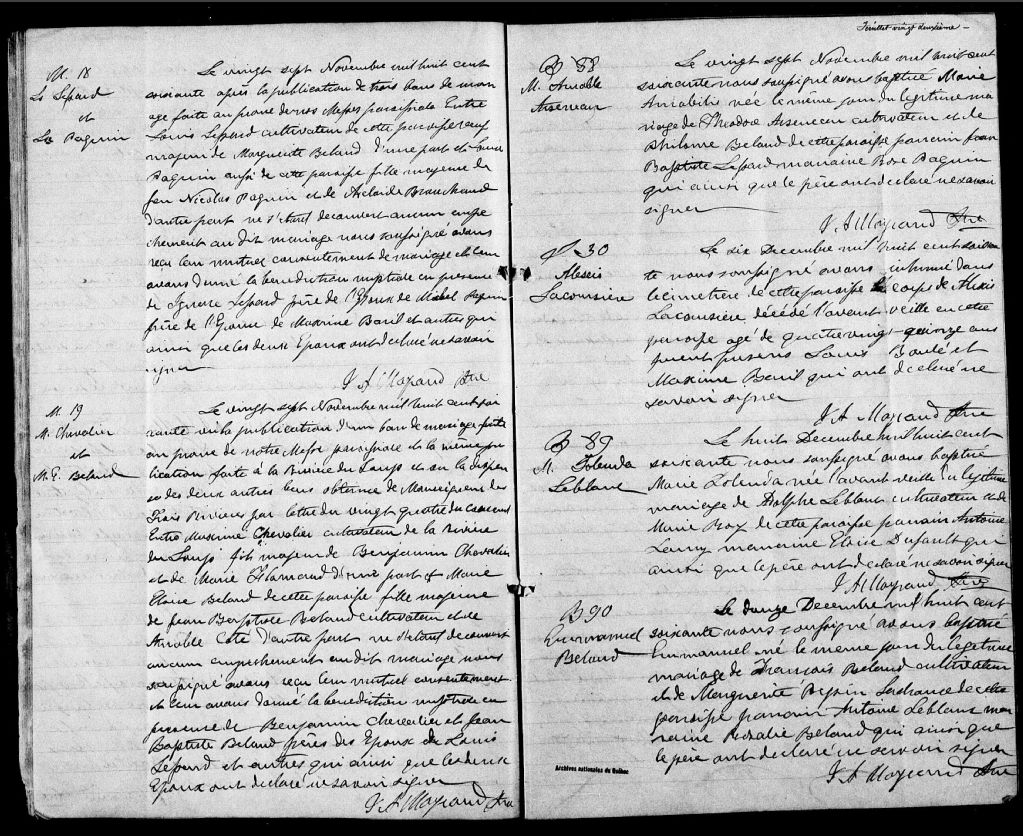 M. 18
Ls Lesard
et
Le Paquin
Le vingt sept Novembre mil huit cent
soixante après la publication de trois bans de mari
age faite au prone de nos Messes paroissiale Entre
Louis Lesard cultivateur de cette paroisse veuf
majeur de Marguerite Beland d'une part et Louise
Paquin aussi de cette paroisse fille majeure de
feu Nicolas Paquin et de Adelaide Branchaud
d'autre part ne s'etant decouvert aucun empe
chement au dit mariage nous soussigné avons
recu leur mutuel consentement de mariage et leur
avons donné la benediction nuptiale en presence
de Ignace Lesard frère de l'Epoux de Michel Paquin
frère de l'Epouse de Maxime Baril et autres qui
ainsi que les deux Epoux ont declaré ne savoir
signer
J. A. Mayrand Ptre
M. 19
M. Chevalier
et
M. E. Beland
Le vingt sept Novembre mil huit cent soi
xante vu la publication d'un ban de mariage faite
au prone de notre Messe paroissiale et la même pu
blication faite à la Rivière du Loup et vu la dispen
se des deux autres bans obtenue de Monseigneur des
Trois Rivières par lettre du vingt quatre du courant
Entre Maxime Chevalier cultivateur de la Rivière
du Loup fils majeur de Benjamin Chevalier
et de Marie Flamand d'une part et Marie
Eloise Beland de cette paroisse fille majeure
de Jean Baptiste Beland cultivateur et de
Amable Coté d'autre part ne s'etant decouvert
aucun empechement au dit mariage nous
soussigné avons recu leur mutuel consentement
et leur avons donné la benediction nuptiale en
presence de Benjamin Chevalier et Jean
Baptiste Beland frères des Epoux de Louis
Lesard et autres qui ainsi que les deux
Epoux ont declaré ne savoir signer
J. A. Mayrand Ptre
Feuillet vingt deuxième
B 88
M. Amable
Arseneau
Le vingt sept Novembre mil huit cent
soixante nous soussigné avons baptisé Marie
Amabilis née le même jour du legitime ma
riage de Theodore Arseneau cultivateur et de
Philomène Beland de cette paroisse parrain Jean
Baptiste Lesard marraine Rose Paquin
qui ainsi que le père ont declaré ne savoir
signer
J. A. Mayrand Ptre
S 30
Alexis
Lacoursière
Le six Decembre mil huit cent soixan
te nous soussigné avons inhumé dans
le cimetière de cette paroisse le corps de Alexis
Lacoursière décédé l'avant veille en cette
paroisse agé de quatre vingt quinze ans
furent presens Louis Boulé et
Maxime Baril qui ont declaré ne
savoir signer
J. A. Mayrand Ptre
B 89
M. Zolenda
Leblanc
Le huit Decembre mil huit cent
soixante nous soussigné avons baptisé
Marie Zolenda née l'avant veille du legitime
mariage de Adolphe Leblanc cultivateur et de
Marie Roy de cette paroisse parrain Antoine
marraine Eloise Dufault qui
ainsi que le père ont declaré ne savoir signer
J. A. Mayrand Ptre
B 90
Emmanuel
Beland
Le douze Decembre mil huit cent
soixante nous soussigné avons baptisé
Emmanuel né le même jour du legitime
mariage de François Beland cultivateur
et de Marguerite de cette
paroisse parrain Antoine Leblanc mar
raine Rosalie Beland qui ainsi que
le père ont declaré ne savoir signer
J. A. Mayrand Ptre
Archives nationales du Québec